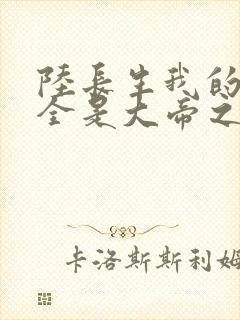 陸長生我的
全是大帝之
卡洛斯斯利姆